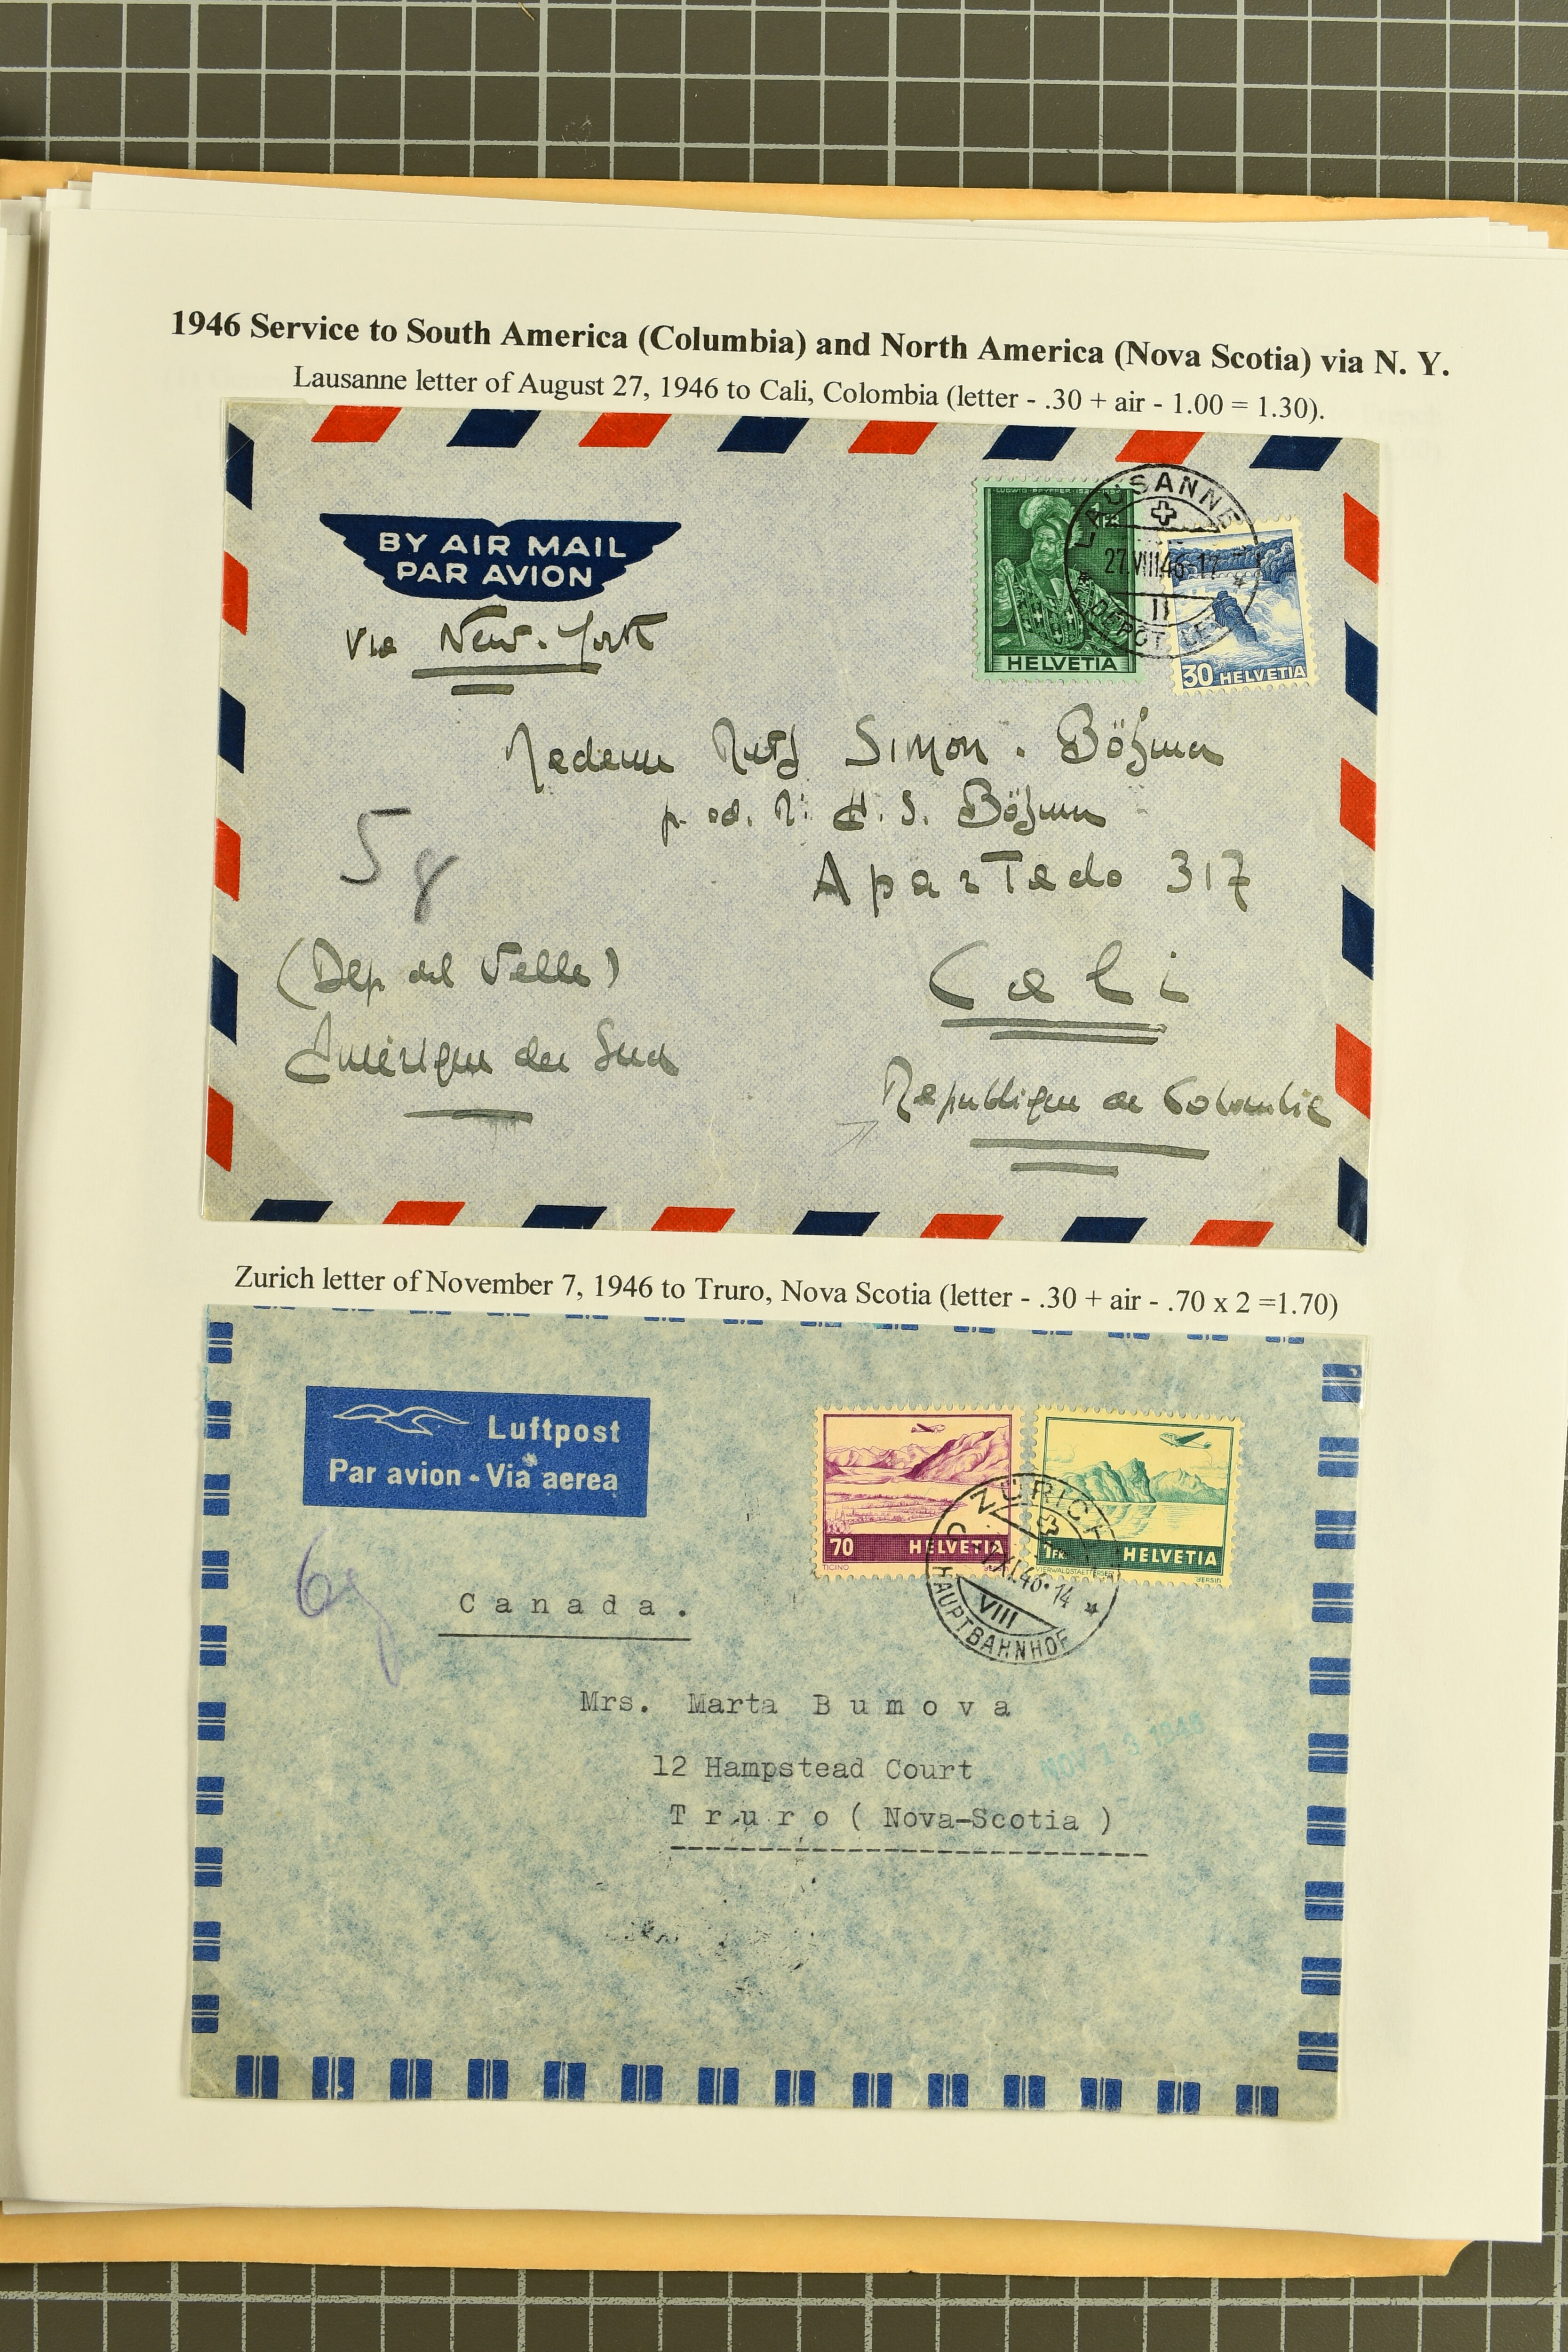 1946 Service to South America (Columbia) and North America (Nova Scotia) via N. Y.
Lausanne letter of August 27, 1946 to Cali, Colombia (letter - .30 + air - 1.00 = 1.30).
BY AIR MAIL
PAR AVION
Via New-York
LUDWIG PFYFFER
1 FR
HELVETIA
LAUSANNE
27.VIII.46-17
II
DÉPÔT LE
30 HELVETIA
Madame Ruth Simon. Böhm
Böhm
5g
Apartado 317
(Dep del Valle)
Cali
Amérique du Sud
Republique de Colombie
Zurich letter of November 7, 1946 to Truro, Nova Scotia (letter - .30 + air - .70 x 2 =1.70)
Luftpost
Par avion - Via aerea
70 HELVETIA
TICINO
1 FR. HELVETIA
VIERWALDSTAETTERSEE
ZÜRICH
XI.46-14
VIII
HAUPTBAHNHOF
6g
Canada.
Mrs. Marta Bumova
NOV 13 1946
12 Hampstead Court
Truro ( Nova-Scotia )